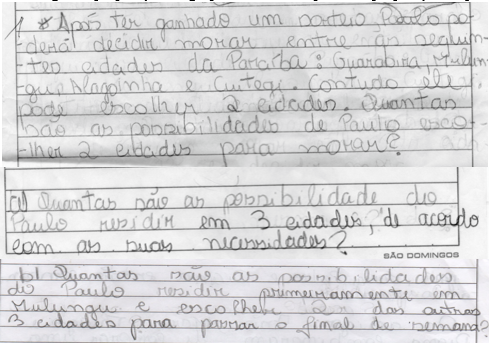 1 * Após ter ganhado um sorteio Paulo po-
derá decidir morar entre as seguin-
tes cidades da Paraíba: Guarabira, Mulun-
gu, Alagoinha e Cuitegi. Contudo ele
pode escolher 2 cidades. Quantas
são as possibilidades de Paulo esco-
lher 2 cidades para morar?
a) Quantas são as possibilidade de
Paulo residir em 3 cidades, de acordo
com as suas necessidades?
SÃO DOMINGOS
b) Quantas são as possibilidades
de Paulo residir primeiramente em
Mulungu e escolher 2 das outras
3 cidades para passar o final de semana?